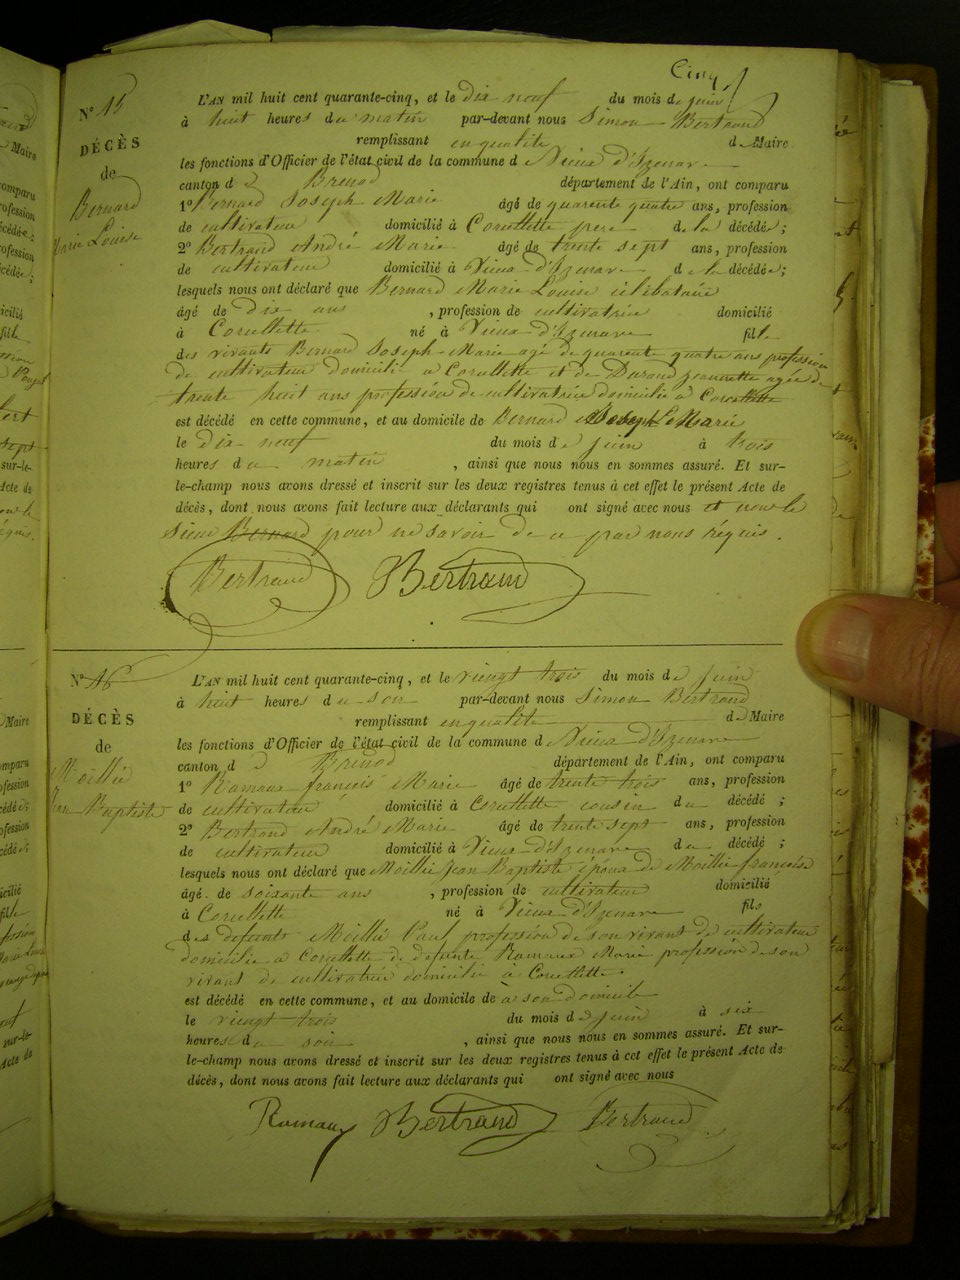 Cinq
N° 15
DÉCÈS
de
Bernard
Marie Louise
L'AN mil huit cent quarante-cinq, et le dix neuf du mois de juin
à huit heures du matin par-devant nous Simon Bertrand
remplissant en qualité de Maire
les fonctions d'Officier de l'état civil de la commune de Vieux d'Izenave
canton de Brenod département de l'Ain, ont comparu
1° Bernard Joseph Marie âgé de quarente quatre ans, profession
de cultivateur domicilié à Corcellette père de la décédée;
2° Bertrand André Marie âgé de trente sept ans, profession
de cultivateur domicilié à Vieux d'Izenave de la décédée;
lesquels nous ont déclaré que Bernard Marie Louise célibataire
âgé de dix ans, profession de cultivatrice domicilié
à Corcellette né à Vieux d'Izenave fille
des vivants Bernard Joseph-Marie agé de quarente quatre ans profession
de cultivateur domicilié a Corcellette et de Durand jeannette agée de
trente huit ans profession de cultivatrice domicilié à Corcellette
est décédé en cette commune, et au domicile de Bernard Joseph Marie
le dix neuf du mois de juin à trois
heures du matin, ainsi que nous nous en sommes assuré. Et sur-
le-champ nous avons dressé et inscrit sur les deux registres tenus à cet effet le présent Acte de
décès, dont nous avons fait lecture aux déclarants qui ont signé avec nous et non le
sieur Bernard pour ne savoir de ce par nous réquis.
Bertrand Bertrand
N° 16
DÉCÈS
de
Moillié
Jean Baptiste
L'AN mil huit cent quarante-cinq, et le vingt trois du mois de juin
à huit heures du soir par-devant nous Simon Bertrand
remplissant en qualité de Maire
les fonctions d'Officier de l'état civil de la commune de Vieux d'Izenave
canton de Brenod département de l'Ain, ont comparu
1° Ramaux françois Marie âgé de trente trois ans, profession
de cultivateur domicilié à Corcellette cousin du décédé;
2° Bertrand André Marie âgé de trente sept ans, profession
de cultivateur domicilié à Vieux d'Izenave du décédé;
lesquels nous ont déclaré que Moillié Jean Baptiste époux de Moillié françoise
âgé de soixante ans, profession de cultivateur domicilié
à Corcellette né à Vieux d'Izenave fils
des defunts Moillié Paul profession de son vivant de cultivateur
domicilié a Corcellette de defunte Ramaux Marie profession de son
vivant de cultivatrice domicilié à Corcellette.
est décédé en cette commune, et au domicile de à son domicile
le vingt trois du mois de juin à six
heures du soir, ainsi que nous nous en sommes assuré. Et sur-
le-champ nous avons dressé et inscrit sur les deux registres tenus à cet effet le présent Acte de
décès, dont nous avons fait lecture aux déclarants qui ont signé avec nous
Ramaux Bertrand Bertrand